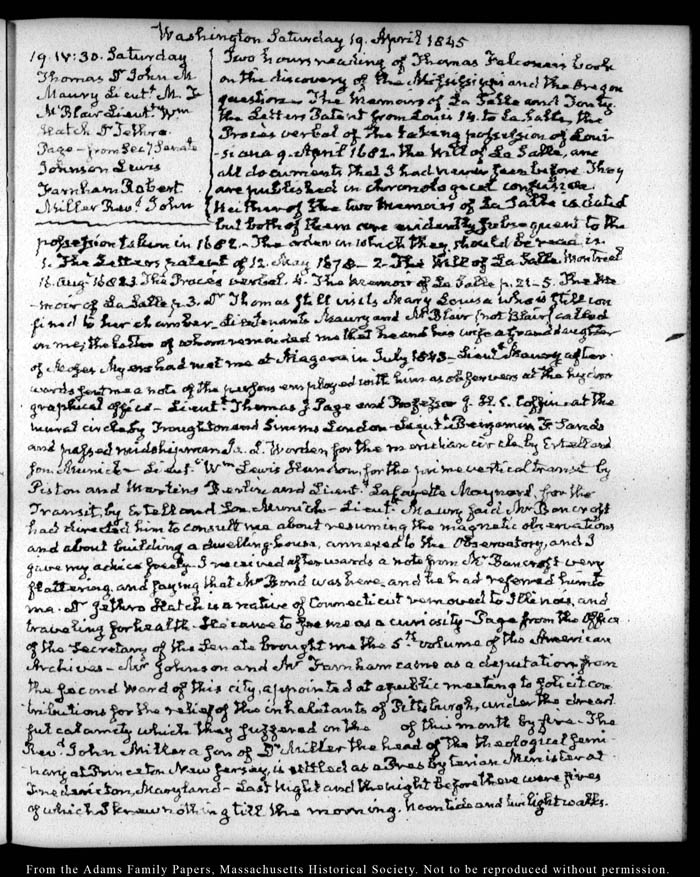 Washington Saturday 19. April 1845
19. IV:30. Saturday
Thomas Dr John M
Maury Lieutt. M. F
McBlair Lieutt. Wm
Hatch Dr Jethro.
Page – from Secy Senate
Johnson Lewis
Farnham Robert
Miller Revd. John
Two hours reading of Thomas Falconer's book
on the discovery of the Mississippi and the Oregon
question. The Memoirs of La Salle and Tonty.
the Letters Patent from Louis 14. to La Salle, the
Procès verbal of the taking possession of Loui-
siana 9. April 1682. the Will of La Salle, are
all documents that I had never seen before. They
are published in chronological confusion.
Neither of the two Memoirs of La Salle is dated
but both of them are evidently subsequent to the
possession taken in 1682. – The order in which they should be read is
1. The Letters patent of 12. May 1678 – 2 – The Will of La Salle. Montreal
Augt 1681 3 The Procès verbal. 4. The Memoir of La Salle p. 21 – 5. The Me
-moir of La Salle p. 3. Dr Thomas still visits Mary Louisa who is still con
fined to her chamber. Lieutenants Maury and McBlair (not Blair) called
on me; the latter of whom reminded me that he and his wife a granddaughter
of Moses Myers had met me at Niagara in July 1843 – Lieutt. Maury after-
wards sent me a note of the persons employed with him as observers at the hydro
graphical office – Lieutt. Thomas J. Page and Professor J. H. C. Coffin at the
mural circle by Troughton and Simms London – Lieutt. Benjamin F. Sands
and passed midshipman J. L. Worden for the meridian circle by Ertel and
son. Munich – Lieut. Wm Lewis Herndon, for the prime vertical transit by
Pistor and Martins Berlin and Lieut. Lafayette Maynard, for the
Transit, by Ertel and Son Munich – Lieut. Maury said Mr Bancroft
had directed him to consult me about resuming the magnetic observations
and about building a dwelling-house, annexed to the Observatory, and I
gave my advice freely. I received afterwards a note from Mr Bancroft very
flattering, and saying that Mr Bond was here, and he had referred him to
me. Dr Jethro Hatch is a native of Connecticut removed to Illinois, and
traveling for health. He came to see me as a curiosity – Page from the Office
of the Secretary of the Senate brought me the 5th volume of the American
Archives – Mr Johnson and Mr Farnham came as a deputation from
the second ward of this city, appointed at a public meeting to solicit con
tributions for the relief of the inhabitants of Pittsburgh, under the dread
ful calamity which they suffered on the of this month by fire – The
Revd John Miller a son of Dr Miller the head of the theological semi
nary at Princeton New Jersey, is settled as a Presbyterian Minister at
Fredericton, Maryland – Last night and the night before there were fires
of which I knew nothing till the morning. Noontide and twilight walks.
From the Adams Family Papers, Massachusetts Historical Society. Not to be reproduced without permission.